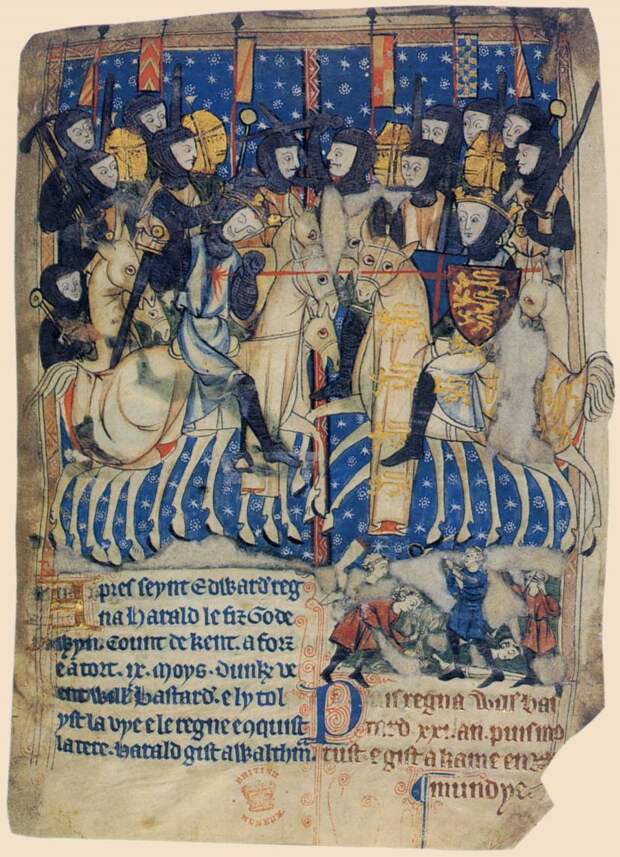 Apres seynt Edward reg
na Harald le fiz Gode
wyn. Count de Kent. a forz
e a tort. ix. moys. dunk ve
ent Bastard. e ly tol
yst la vye e le regne
la tere. Harald gist a
Puis regna Bas
tard an. puis mo
rust. e gist a kame en
mundye
BRITISH
MUSEUM